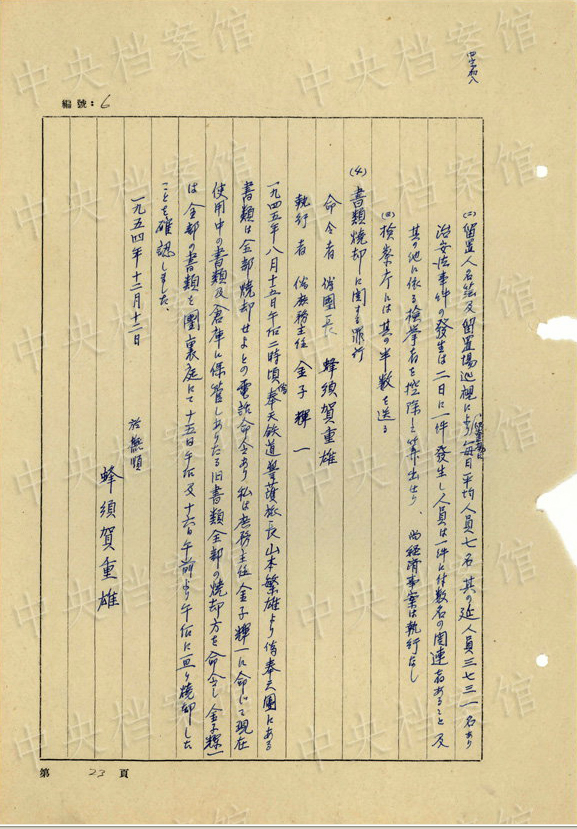 編號：6
(二) 留置人名簿及留置場巡視により毎日平均人員七名 其の延人員三七三一名あり
治安法事件の發生は二日に一件發生し人員は一件に付数名の関連者あること及
其の他に依る検挙者を控除し算出せり、 尚経済事案は執行なし
検察庁には其の半数を送る
(4) 書類焼却に関する罪行
命令者 偽團長 蜂須賀重雄
執行者 偽庶務主任 金子輝一
一九四五年八月十五日午后二時頃偽奉天鉄道警護旅長山本繁雄より偽奉天團にある
書類は全部焼却せよとの電話命令あり私は庶務主任金子輝一に命じて現在
使用中の書類及倉庫に保管しありたる旧書類全部の焼却方を命令し金子輝一
は全部の書類を團裏庭にて十五日午后及十六日午前より午后に亘り焼却した
ことを確認しました、
一九五四年十二月十二日
於撫順
蜂須賀重雄
第 23 頁
中央档案馆